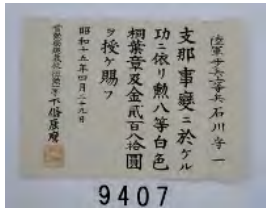 陸軍步兵上等兵石川守一
支那事變ニ於ケル
功ニ依リ勲八等白色
桐葉章及金貳百八拾圓
ヲ授ケ賜フ
昭和十五年四月二十九日
賞勲局總裁從四位勲二等下條康麿
9407